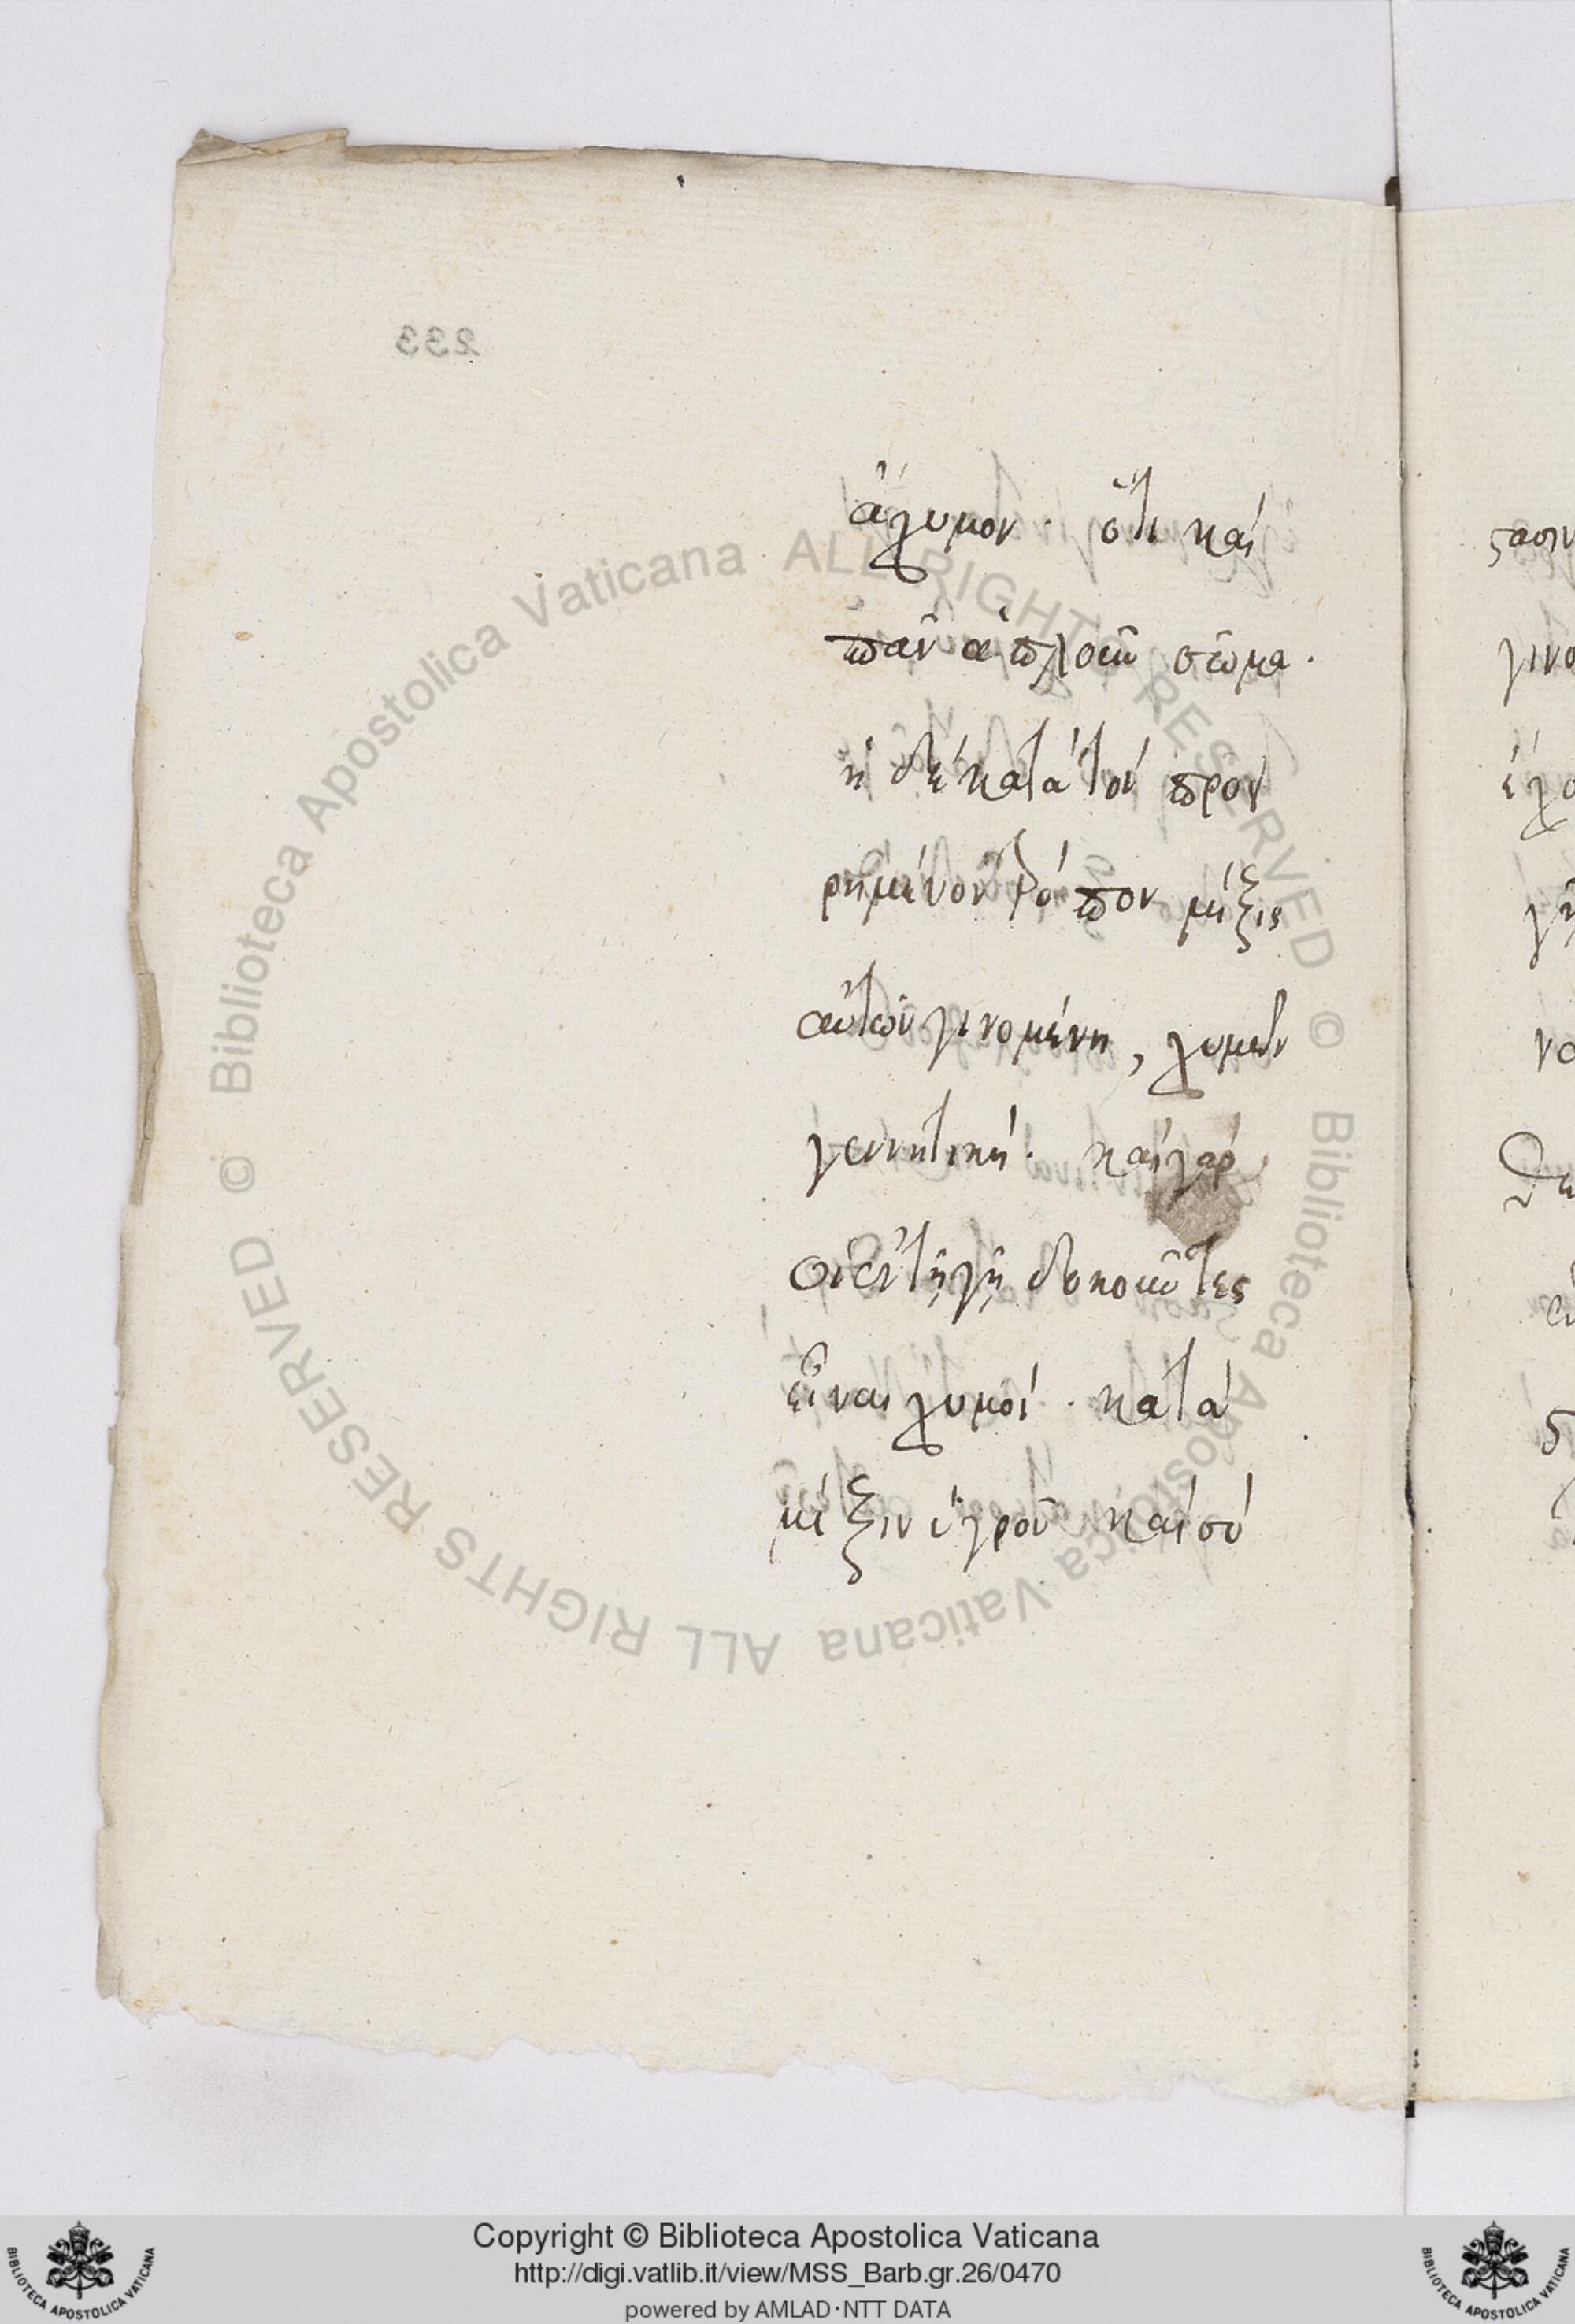 233
ἄχυμον · ὅτι καὶ
πᾶν ἁπλοῦν σῶμα ·
ἡ δὲ κατὰ τὸν προει
ρημένον τρόπον μίξις
αὐτῶν γινομένη, χυμῶν
γεννητικὴ · καὶ γὰρ
οἱ ἐν τῇ γῇ δοκοῦντες
εἶναι χυμοὶ · κατὰ
μίξιν ὑγροῦ καὶ
© Biblioteca Apostolica Vaticana ALL RIGHTS RESERVED © Biblioteca Apostolica Vaticana ALL RIGHTS RESERVED
Copyright © Biblioteca Apostolica Vaticana
http://digi.vatlib.it/view/MSS_Barb.gr.26/0470
powered by AMLAD·NTT DATA
BIBLIOTECA APOSTOLICA VATICANA
BIBLIOTECA APOSTOLICA VATICANA